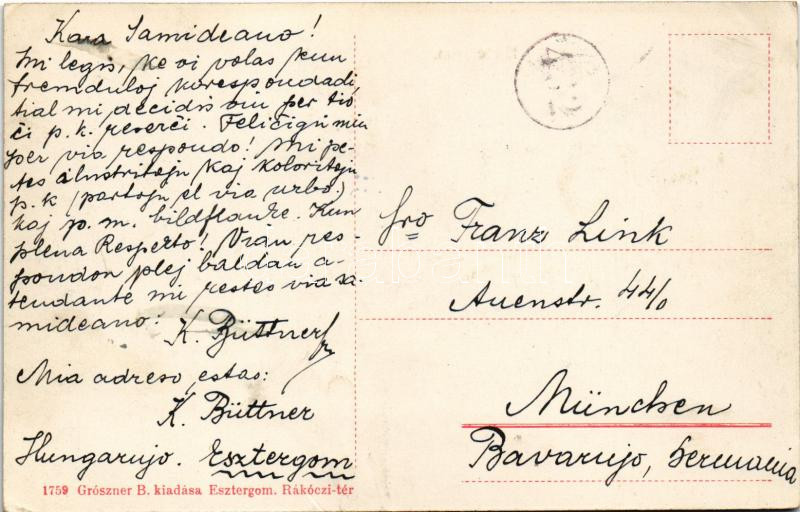 Kara Samideano!
Mi legis, ke vi volas kun
fremduloj korespondadi,
tial mi decidis vin per tio
ĉi p. k. serĉi. Feliĉigu min
per via respondo! Mi pe-
tas ilustritajn kaj koloritajn
p. k. (partojn el via urbo)
kaj p. m. bildflanke. Kun
plena Respekto! Vian res-
pondon plej baldaŭ a-
tendante mi restas via sa-
mideano:
K. Büttner
Mia adreso estas:
K. Büttner
Hungarujo. Esztergom
1759 Grószner B. kiadása Esztergom. Rákóczi-tér
Sro Franz Link
Auenstr. 44/0
München
Bavarujo, Germania